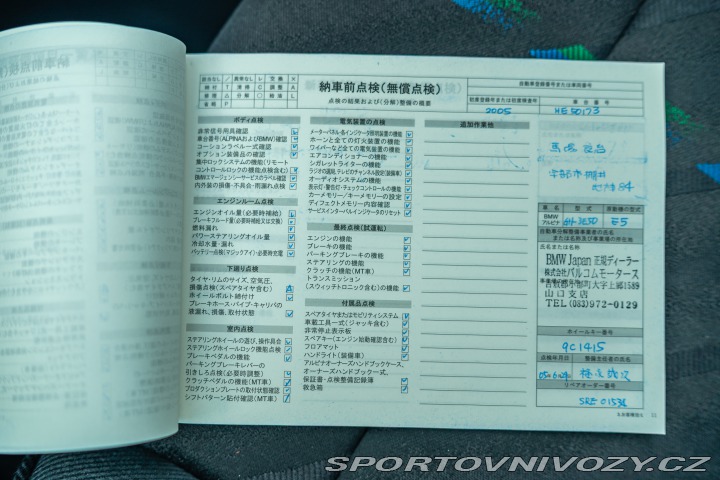 納車前点検(無償点検)
点検の結果および(分解)整備の概要
自動車登録番号または車両番号
初度登録年または初度検査年
車台番号
2005
HE50173
ボディ点検
非常信号用具確認
車台番号(ALPINAおよびBMW)確認
コーションラベル一式確認
オプション装備品の確認
集中ロックシステムの機能(リモート
コントロールロックの機能点検含む)
BMWエマージェンシーサービスのラベル確認
内外装の損傷・不具合・雨漏れ点検
エンジンルーム点検
エンジンオイル量(必要時補給)
ブレーキフルード量(必要時補給又は交換)
燃料漏れ
パワーステアリングオイル量
冷却水量・漏れ
バッテリー点検(マジックアイ)・必要時充電
下廻り点検
タイヤ・リムのサイズ、空気圧、
損傷点検(スペアタイヤ含む)
ホイールボルト締付け
ブレーキホース・パイプ・キャリパの
液漏れ、損傷、取付状態
室内点検
ステアリングホイールの遊び、操作具合
ステアリングホイールロック機能点検
ブレーキペダルの機能
パーキングブレーキレバーの
引きしろ点検(必要時調整)
クラッチペダルの機能(MT車)
プロダクションプレートの取付状態確認
シフトパターン貼付確認(MT車)
電気装置の点検
メーターパネル・各インジケータ類照明装置の機能
ホーンと全ての灯火装置の機能
ワイパーなど全ての電気装置の機能
エアコンディショナーの機能
シガレットライターの機能
ラジオの調整、テレビのチャンネル設定(装備車)
オーディオシステムの機能
表示灯・警告灯・チェックコントロールの機能
カーメモリー/キーメモリーの設定
ディフェクトメモリー内容確認
サービスインターバルインジケータのリセット
最終点検(試運転)
エンジンの機能
ブレーキの機能
パーキングブレーキの機能
ステアリングの機能
クラッチの機能(MT車)
トランスミッション
(スウィッチトロニック含む)の機能
付属品点検
スペアタイヤまたはモビリティシステム
車載工具一式(ジャッキ含む)
非常停止表示板
スペアキー(エンジン始動確認含む)
フロアマット
ハンドライト(装備車)
アルピナオーナーズハンドブックケース、
オーナーズハンドブック一式、
保証書・点検整備記録簿
救急箱
追加作業他
車名
型式
原動機の型式
BMW
アルピナ
E5
自動車分解整備事業者の氏名
または名称及び事業場の所在地
氏名または名称
BMW Japan 正規ディーラー
株式会社バルコムモータース
事業場の所在地
吉敷郡小郡町大字上郷1589
山口支店
TEL (083)972-0129
ホイールキー番号
9C1415
点検年月日
整備主任者の氏名
リペアオーダー番号
SRE 01534
SPORTOVNIVOZY.CZ